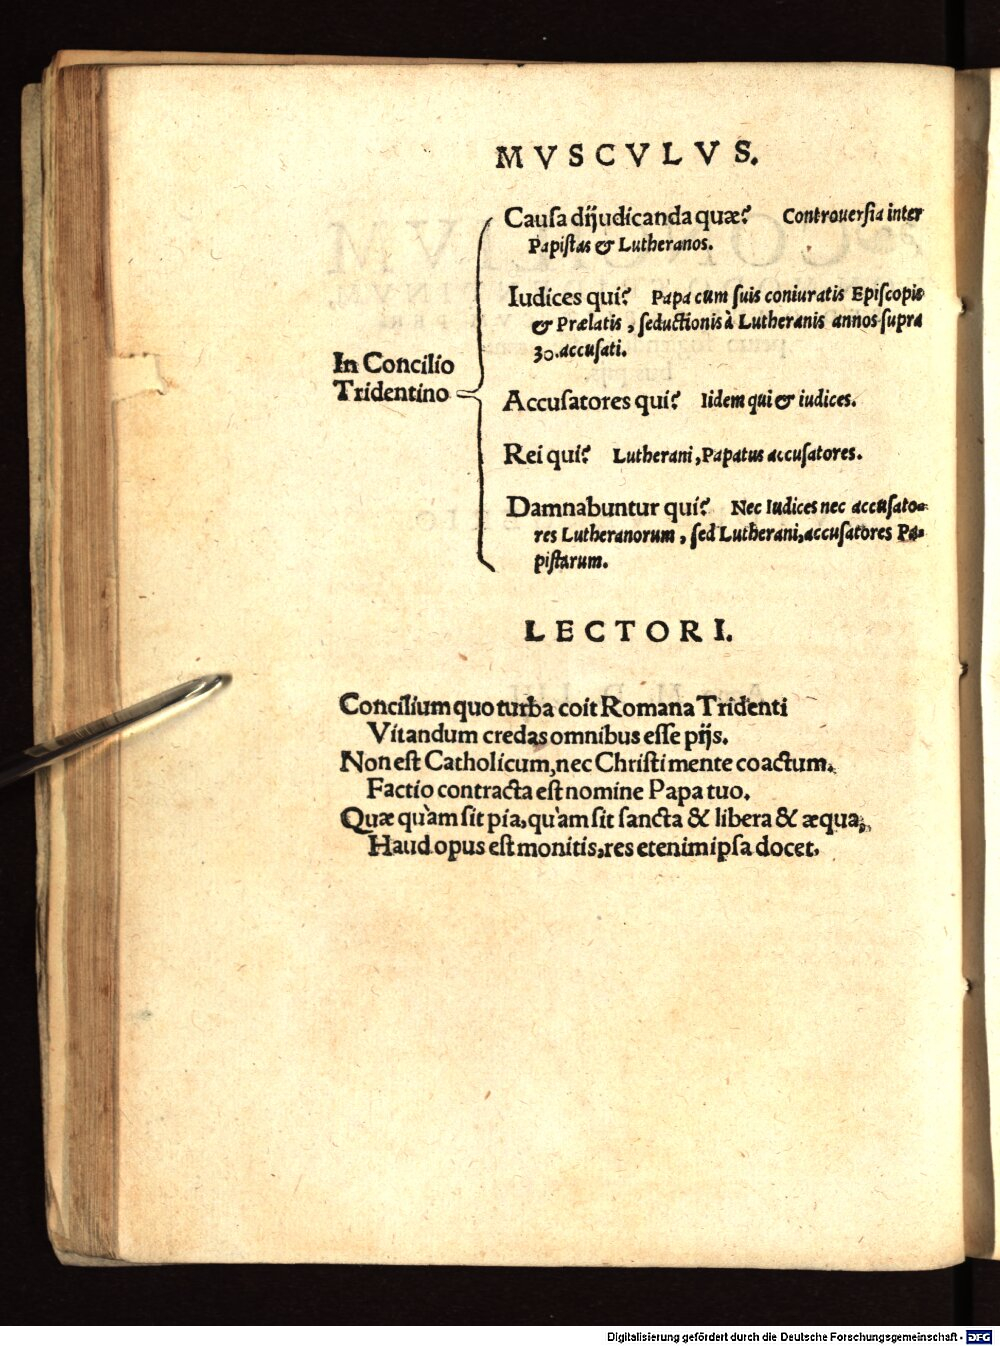 MVSCVLVS.
Cauſa dijudicanda quæ? Controuerſia inter
Papiſtas & Lutheranos.
Iudices qui? Papa cum ſuis coniuratis Epiſcopis
& Prælatis, ſeductionis à Lutheranis annos ſupra
30. accuſati.
In Concilio
Tridentino
Accuſatores qui? Iidem qui & iudices.
Rei qui? Lutherani, Papatus accuſatores.
Damnabuntur qui? Nec Iudices nec accuſato-
res Lutheranorum, ſed Lutherani, accuſatores Pa-
piſtarum.
LECTORI.
Concilium quo turba coit Romana Tridenti
Vitandum credas omnibus eſſe pijs.
Non eſt Catholicum, nec Chriſti mente coactum.
Factio contracta eſt nomine Papa tuo.
Quæ quàm ſit pia, quàm ſit ſancta & libera & æqua,
Haud opus eſt monitis, res etenim ipſa docet.
Digitalisierung gefördert durch die Deutsche Forschungsgemeinschaft - DFG